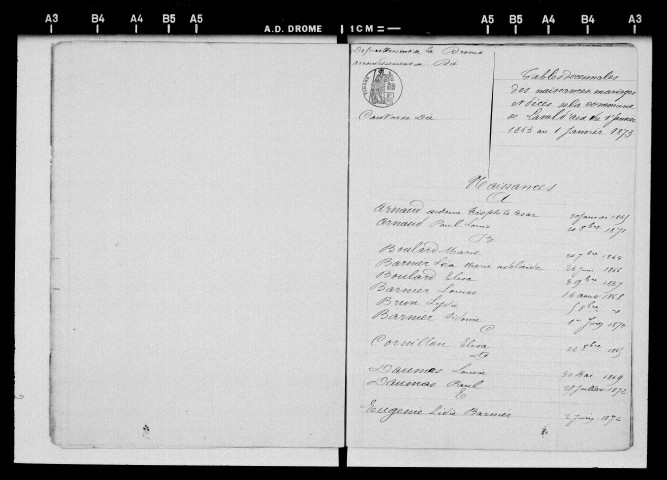 A3 B4 A4 B5 A5 A.D. DROME 1CM A5 B5 A4 B4 A3
Département de la Drome
arrondissement de Die
Canton de Die
Tables décennales
des naissances mariages
et décès de la commune
de Laval d'aix du 1er Janvier
1863 au 1 Janvier 1873
Naissances
A
Arnaud antoine César
Arnaud Paul Louis 1870
B
Boulard Marie 1864
Barnier Léa Marie adelaide 1866
Boulard Elisa 9bre 1867
Barnier Louise 16 aout 1868
Brun Lydie
Barnier Sidonie 1er Juin 1870
C
Cornillon Elisa 22 8bre 1865
D
Daumas Louise 30 Mai 1869
Daumas Paul 28 Juillet 1872
E
Eugenie Lidie Barnier 2 Juin 1872